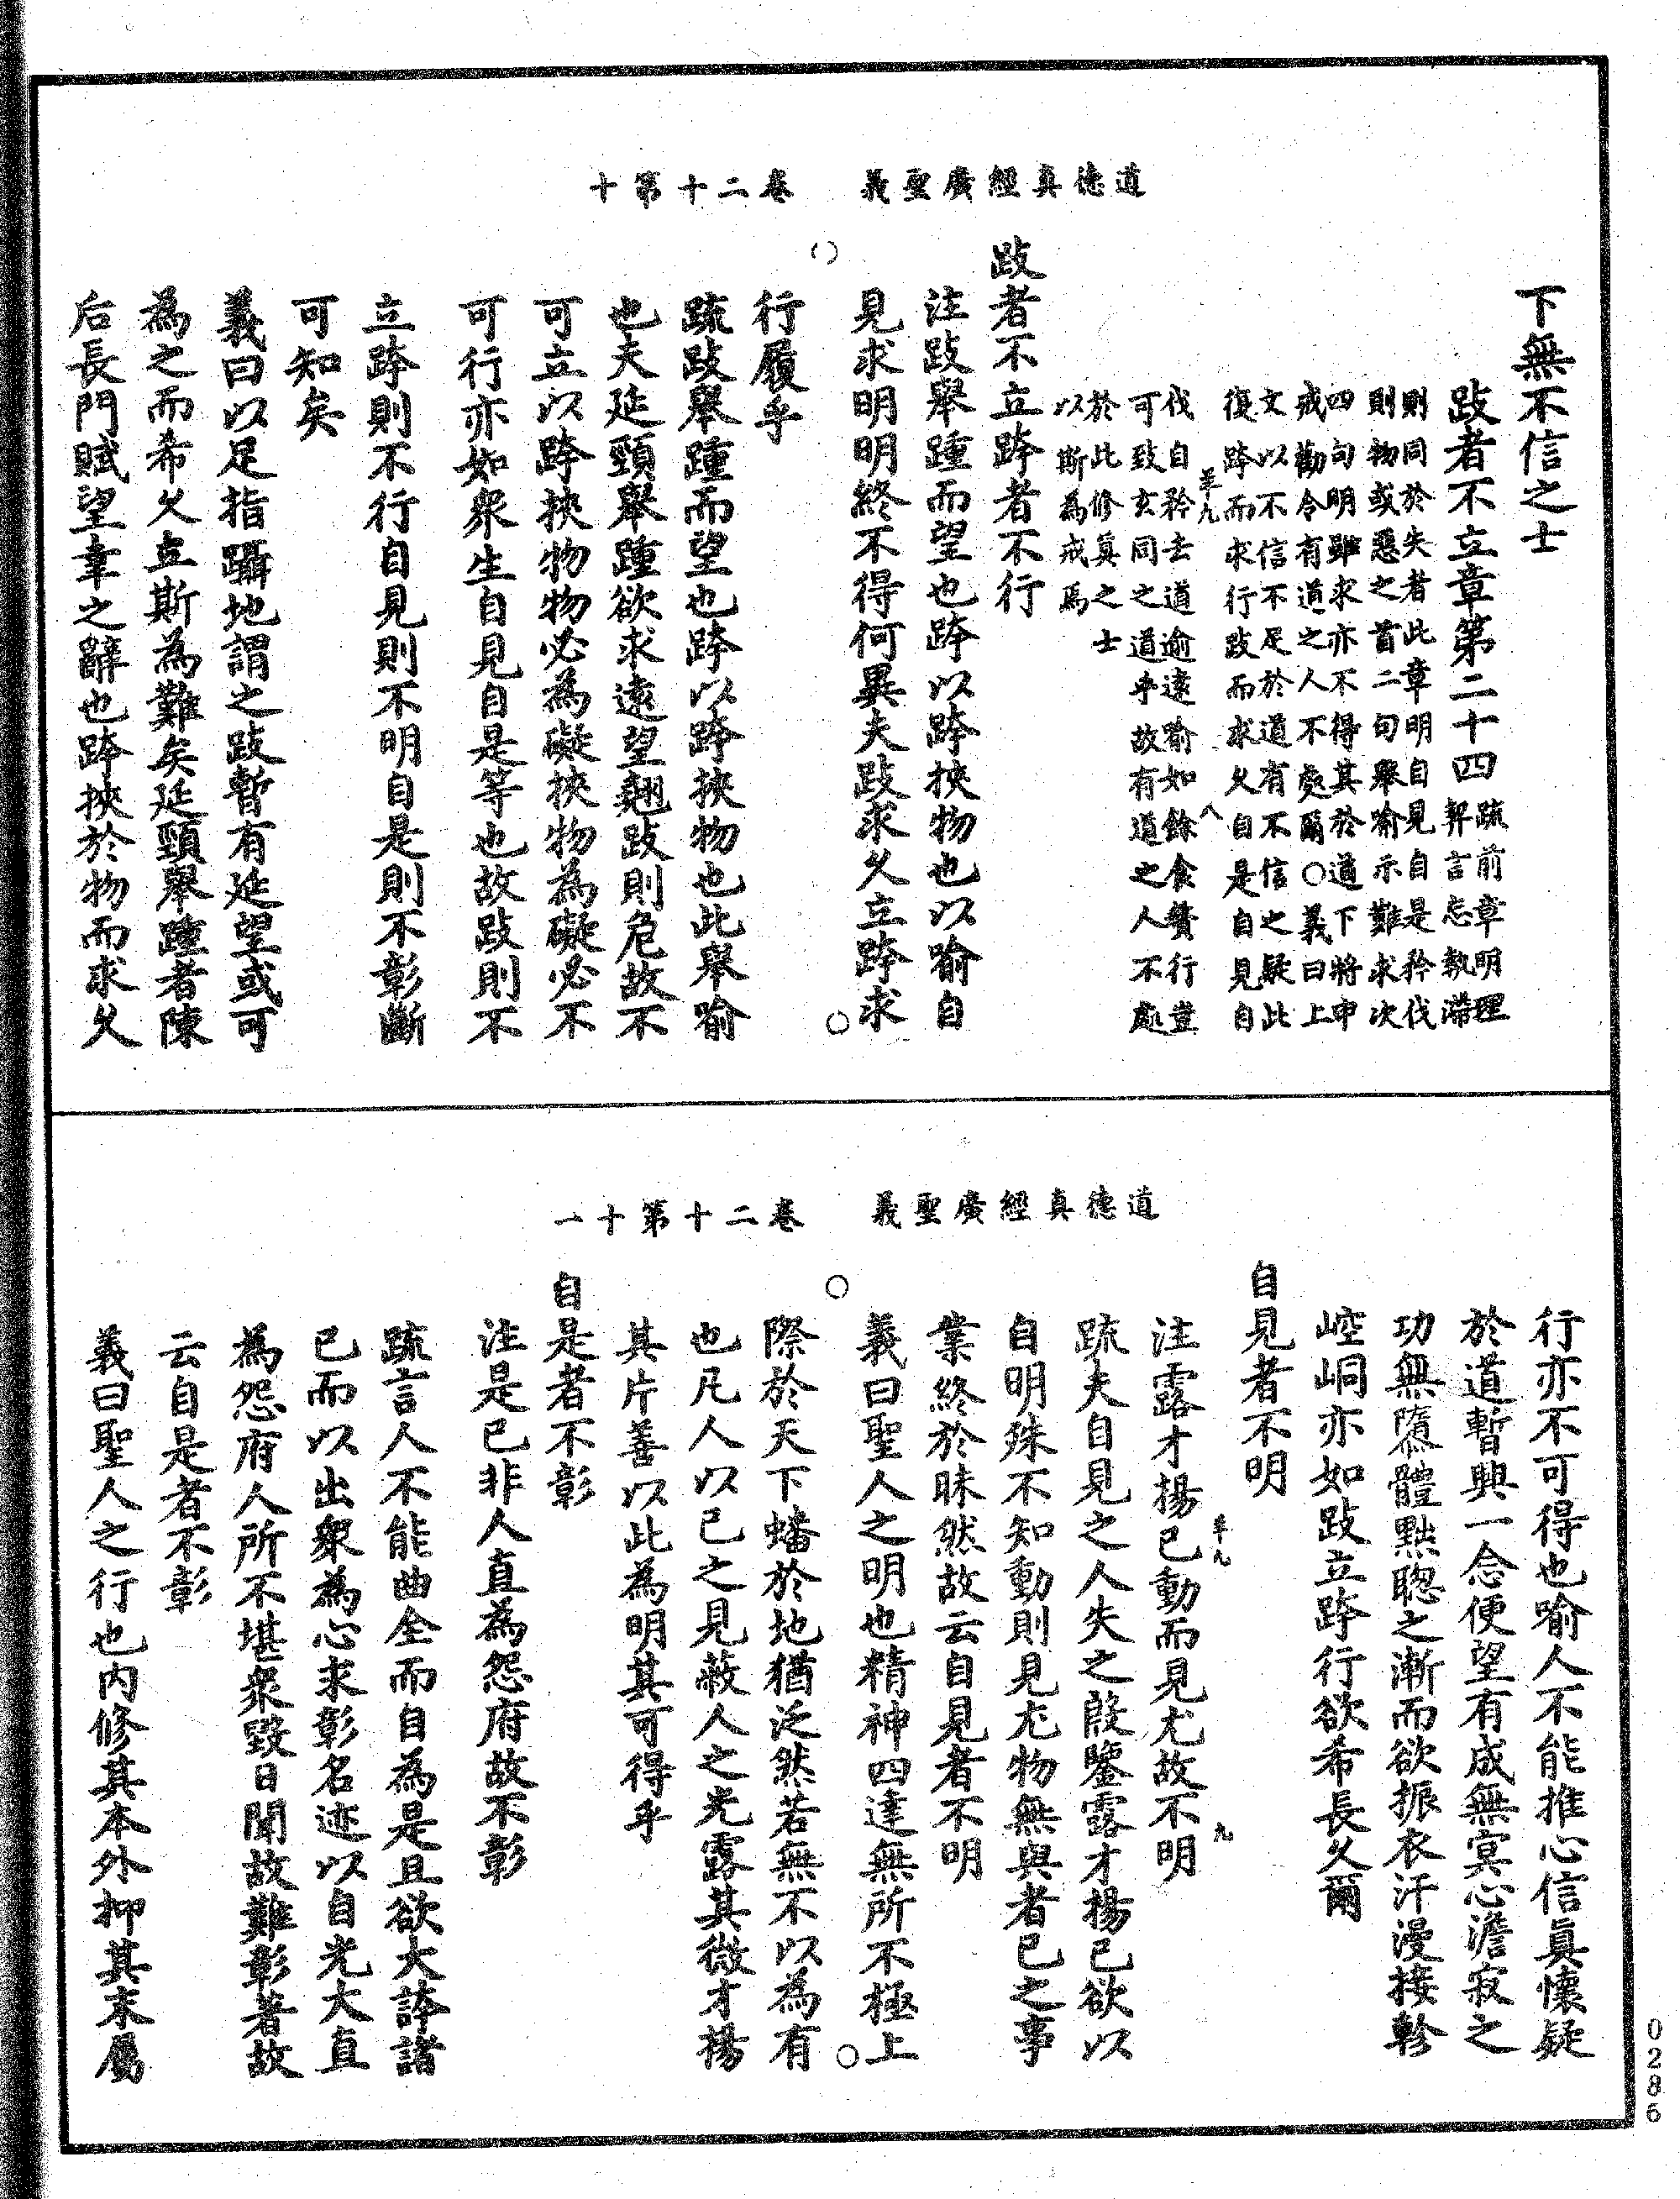 道德真經廣聖義　卷二十第十
下無不信之士
跂者不立章第二十四
疏前章明理
契言忘執滯
則同於失者此章明自見自是矜伐
則物或惡之首二句舉喻示難求次
四句明雖求亦不得其於道下將申
戒勸令有道之人不處爾○義曰上
文以不信不足於道有不信之疑此
復跨而求行跂而求久自是自見自
伐自矜去道逾遠喻如餘食贅行豈
可致玄同之道乎故有道之人不處
於此修真之士
以斯為戒焉
跂者不立跨者不行
注跂舉踵而望也跨以跨挾物也以喻自
見求明明終不得何異夫跂求久立跨求
行履乎
疏跂舉踵而望也跨以跨挾物也此舉喻
也夫延頸舉踵欲求遠望翹跂則危故不
可立以跨挾物物必為礙挾物為礙必不
可行亦如衆生自見自是等也故跂則不
立跨則不行自見則不明自是則不彰斷
可知矣
義曰以足指躡地謂之跂暫有延望或可
為之而希久立斯為難矣延頸舉踵者陳
后長門賦望幸之辭也跨挾於物而求久
道德真經廣聖義　卷二十第十一
行亦不可得也喻人不能推心信真懷疑
於道暫興一念便望有成無冥心澹寂之
功無隳體黜聰之漸而欲振衣汗漫接軫
崆峒亦如跂立跨行欲希長久爾
自見者不明
注露才揚己動而見尤故不明
疏夫自見之人失之殷鑒露才揚己欲以
自明殊不知動則見尤物無與者己之事
業終於昧然故云自見者不明
義曰聖人之明也精神四達無所不極上
際於天下蟠於地猶泛然若無不以為有
也凡人以己之見蔽人之光露其微才揚
其片善以此為明其可得乎
自是者不彰
注是己非人直為怨府故不彰
疏言人不能曲全而自為是且欲大誇諸
己而以出衆為心求彰名迹以自光大直
為怨府人所不堪衆毀日聞故難彰著故
云自是者不彰
義曰聖人之行也內修其本外抑其末厲
0286